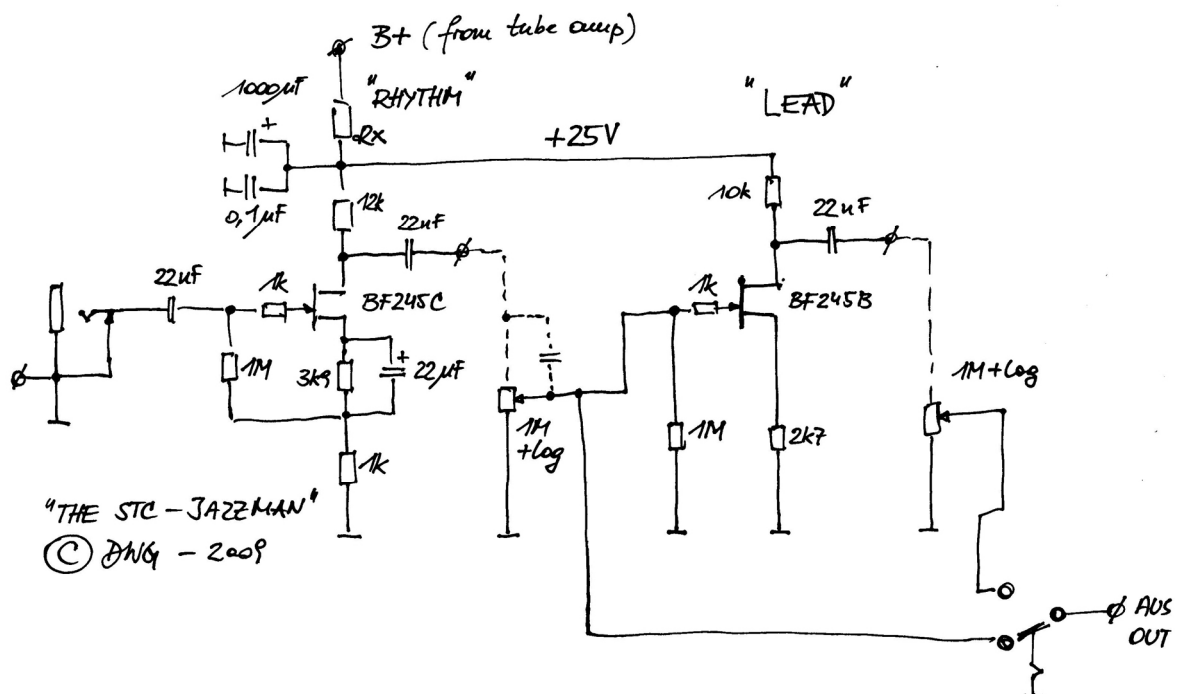 B+ (from tube amp)
1000µF
+
"RHYTHM"
"LEAD"
Rx
+25V
0,1µF
12k
10k
22nF
22nF
22nF
1k
BF245C
1k
BF245B
1M
3k9
+
22µF
1M
+log
1M
2k7
1M+log
1k
"THE STC-JAZZMAN"
© DWG - 2009
AUS
OUT